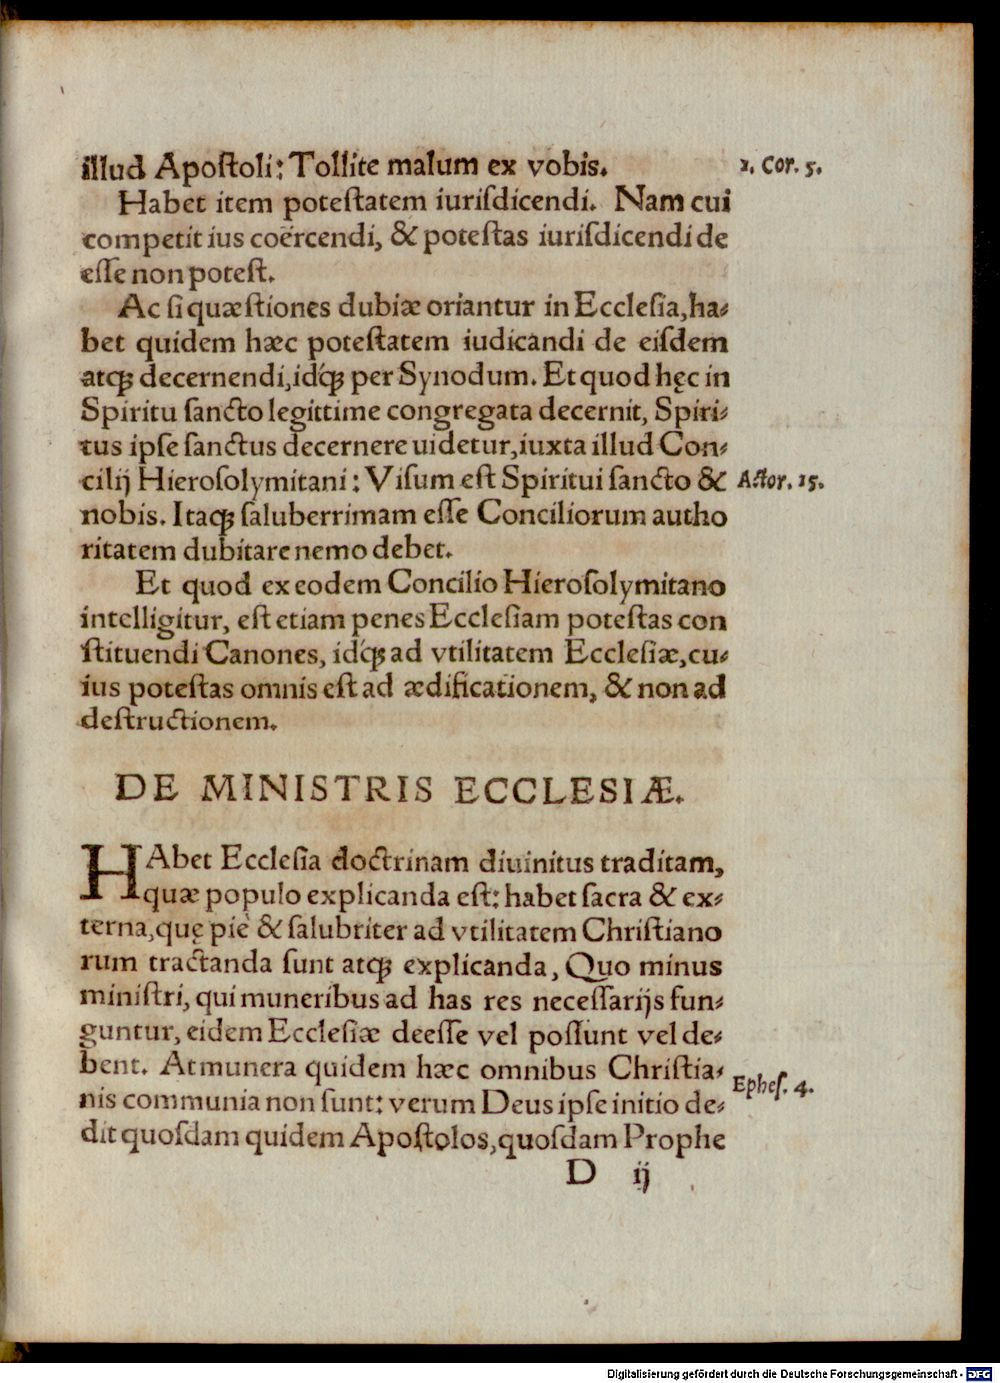 illud Apoſtoli: Tollite malum ex vobis.
1. Cor. 5.
Habet item poteſtatem iuriſdicendi. Nam cui
competit ius coërcendi, & poteſtas iuriſdicendi de
eſſe non poteſt.
Ac ſi quæſtiones dubiæ oriantur in Eccleſia, ha⸗
bet quidem hæc poteſtatem iudicandi de eiſdem
atq́ꝫ decernendi, idq́ꝫ per Synodum. Et quod hęc in
Spiritu ſancto legittime congregata decernit, Spiri⸗
tus ipſe ſanctus decernere uidetur, iuxta illud Con⸗
cilij Hieroſolymitani: Viſum eſt Spiritui ſancto &
Actor. 15.
nobis. Itaqꝫ ſaluberrimam eſſe Conciliorum autho
ritatem dubitare nemo debet.
Et quod ex eodem Concilio Hieroſolymitano
intelligitur, eſt etiam penes Eccleſiam poteſtas con
ſtituendi Canones, idq́ꝫ ad vtilitatem Eccleſiæ, cu⸗
ius poteſtas omnis eſt ad ædificationem, & non ad
deſtructionem.
DE MINISTRIS ECCLESIÆ.
HAbet Eccleſia doctrinam diuinitus traditam,
quæ populo explicanda eſt: habet ſacra & ex⸗
terna, quę piè & ſalubriter ad vtilitatem Chriſtiano
rum tractanda ſunt atqꝫ explicanda, Quo minus
miniſtri, qui muneribus ad has res neceſſarijs fun⸗
guntur, eidem Eccleſiæ deeſſe vel poſſunt vel de⸗
bent. At munera quidem hæc omnibus Chriſtia⸗
Epheſ. 4.
nis communia non ſunt: verum Deus ipſe initio de⸗
dit quoſdam quidem Apoſtolos, quoſdam Prophe
D ij
Digitalisierung gefördert durch die Deutsche Forschungsgemeinschaft - DFG